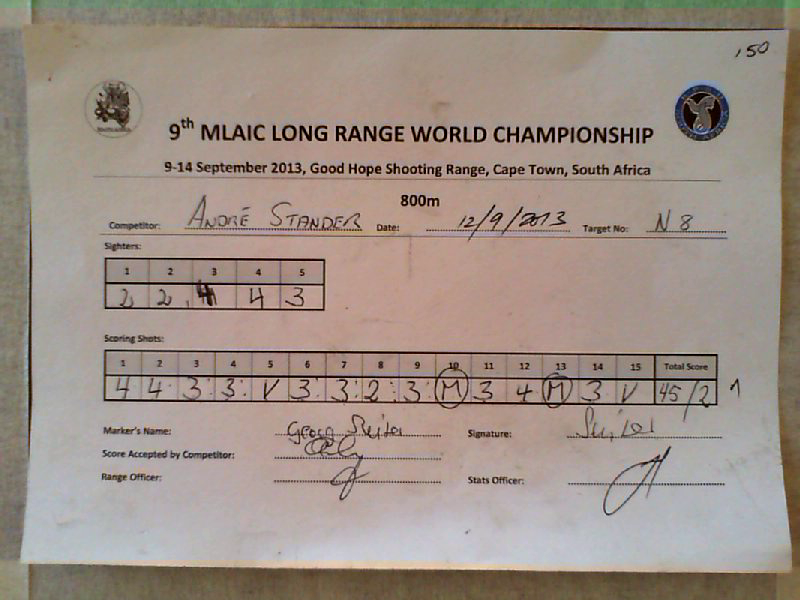 ,50
9th MLAIC LONG RANGE WORLD CHAMPIONSHIP
9-14 September 2013, Good Hope Shooting Range, Cape Town, South Africa
800m
Competitor: ANDRÉ STANDER Date: 12/9/2013 Target No: N 8
Sighters:
1 2 3 4 5
2 2 4 4 3
Scoring Shots:
1 2 3 4 5 6 7 8 9 10 11 12 13 14 15 Total Score
4 4 3 3 V 3 3 2 3 M 3 4 M 3 V 45/2 1
Marker's Name: Georg Signature:
Score Accepted by Competitor:
Range Officer: Stats Officer: